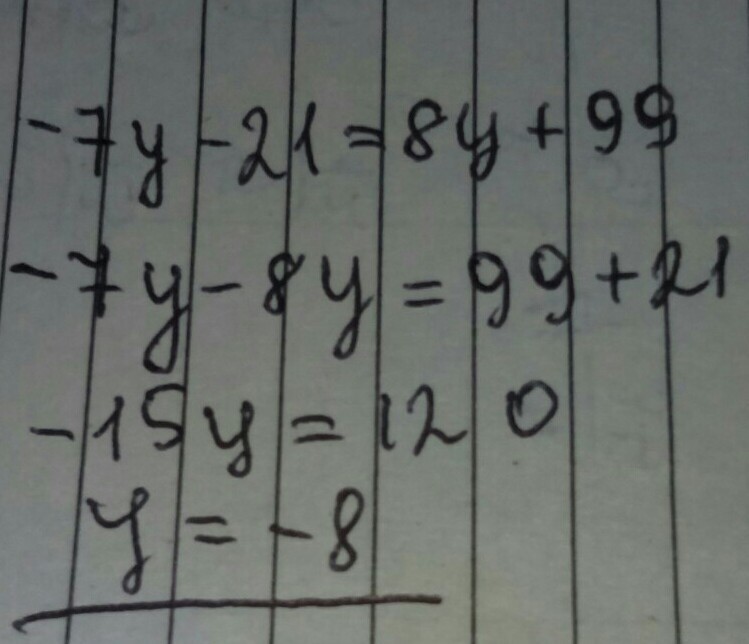 -7y-21=8y+99
-7y-8y=99+21
-15y=120
y=-8